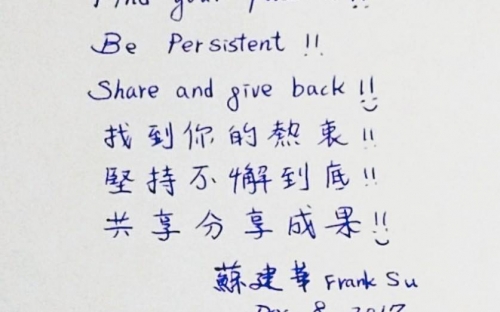 Find your
Be Persistent !!
Share and give back !!
找到你的熱衷!!
堅持不懈到底!!
共享分享成果!!
蘇建華 Frank Su
8, 2017